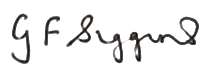 G F Siggins